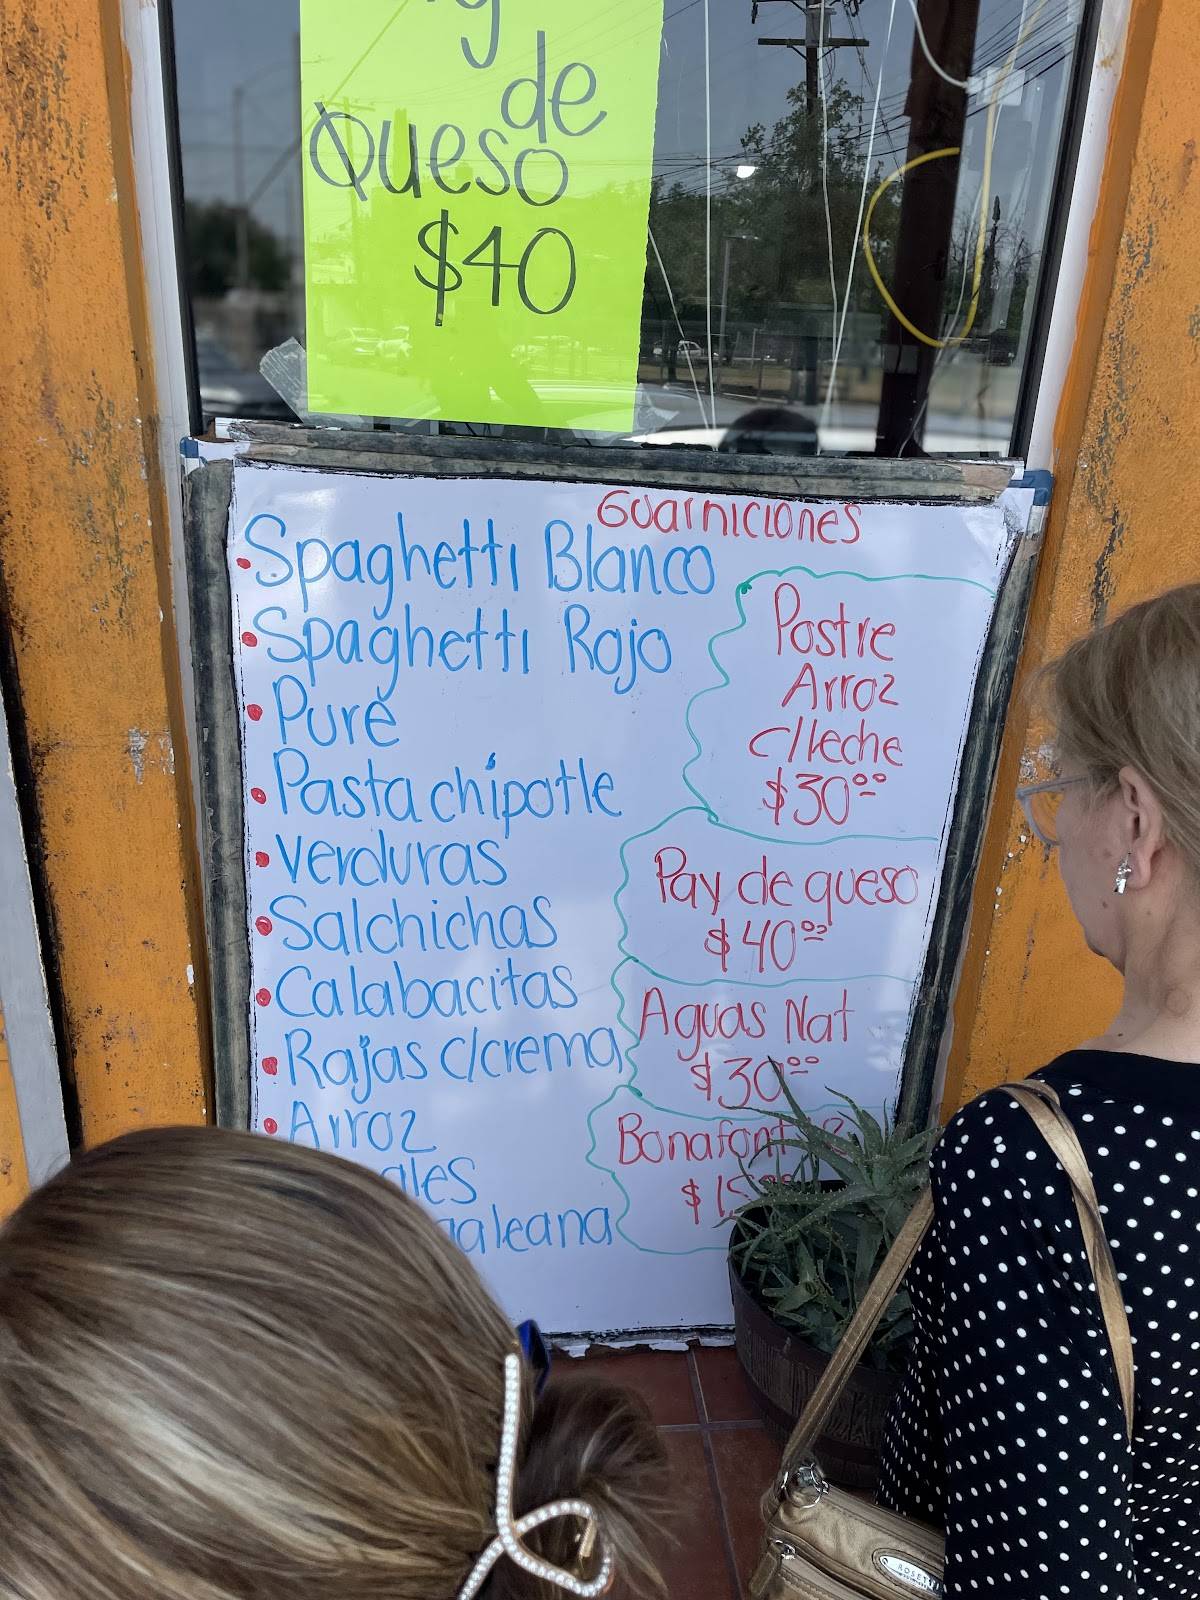 de
Queso
$40
Guarniciones
Spaghetti Blanco
Spaghetti Rojo
Puré
Pasta chipotle
verduras
Salchichas
Calabacitas
Rajas c/crema
Arroz
Postre
Arroz
c/leche
$30.00
Pay de queso
$40.00
Aguas Nat
$30.00
Bonafont